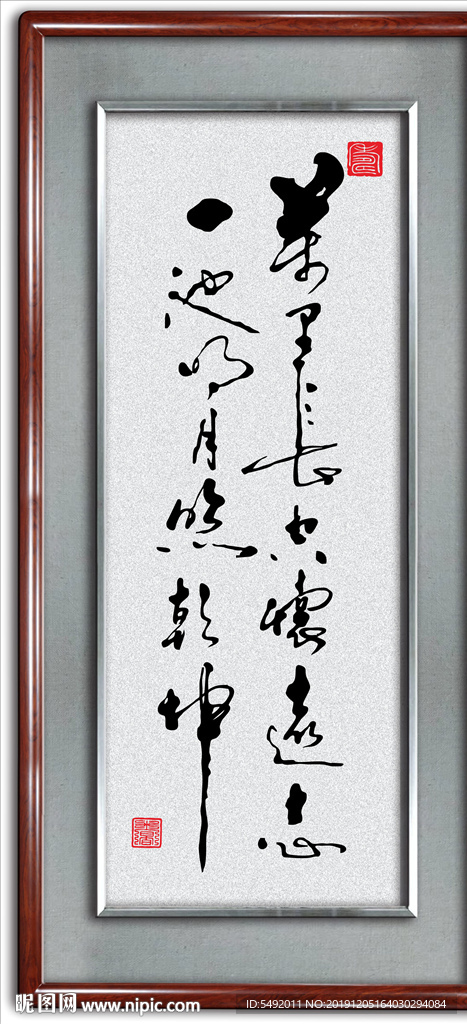 萬里長空懷遠志
一池明月照乾坤
昵图网 www.nipic.com
ID:5492011 NO:20191205164030294084